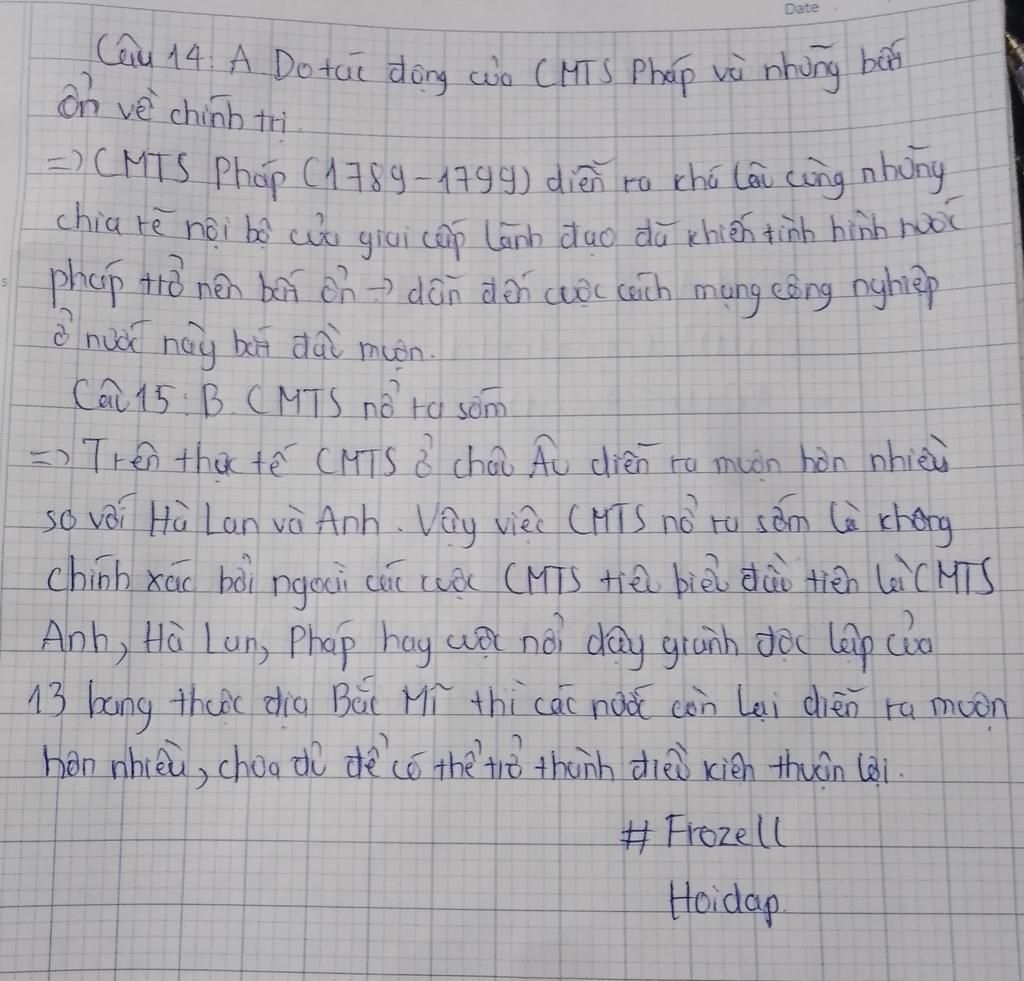 Date
Câu 14: A Do tác động của CMTS Pháp và những bất
ổn về chính trị
=> CMTS Pháp (1789-1799) diễn ra khá lâu cùng những
chia rẽ nội bộ của giai cấp lãnh đạo đã khiến tình hình nước
pháp trở nên bất ổn → dẫn đến cuộc cách mạng công nghiệp
ở nước này bắt đầu muộn.
Câu 15: B. CMTS nổ ra sớm
=> Trên thực tế CMTS ở châu Âu diễn ra muộn hơn nhiều
so với Hà Lan và Anh. Vậy việc CMTS nổ ra sớm là không
chính xác bởi ngoài các cuộc CMTS tiêu biểu đầu tiên là CMTS
Anh, Hà Lan, Pháp hay cuộc nổi dậy giành độc lập của
13 bang thuộc địa Bắc Mĩ thì các nước còn lại diễn ra muộn
hơn nhiều, chưa đủ để có thể trở thành điều kiện thuận lợi.
# Frozell
Hoidap.